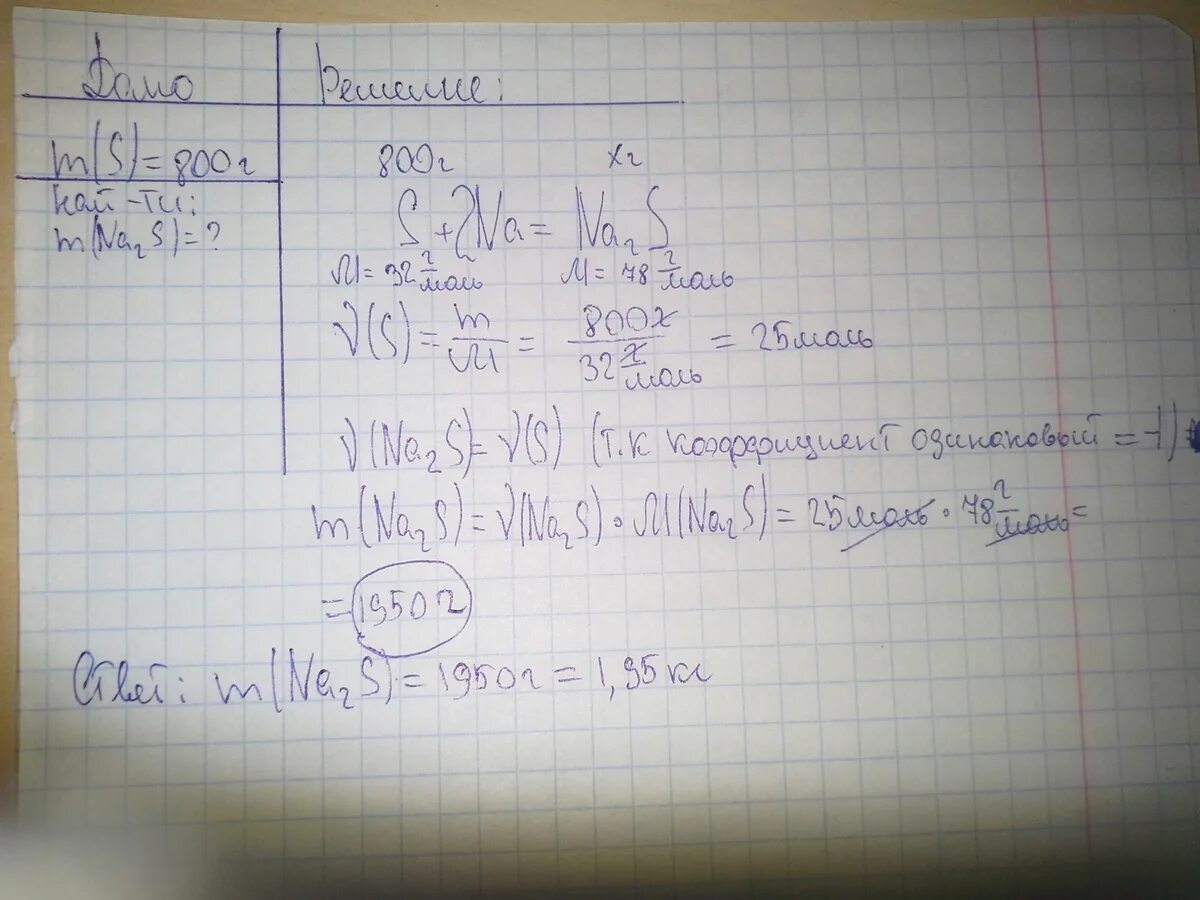 Дано
Решение:
m(S)=800г
най-ти:
m(Na₂S)=?
800г хг
S+2Na=Na₂S
M=32 г/моль M=78 г/моль
ν(S)=m/M=800г/32 г/моль=25моль
ν(Na₂S)=ν(S) (т.к коэффициент одинаковый =1)
m(Na₂S)=ν(Na₂S)·M(Na₂S)=25моль·78 г/моль=
=1950г
Ответ: m(Na₂S)=1950г=1,95кг